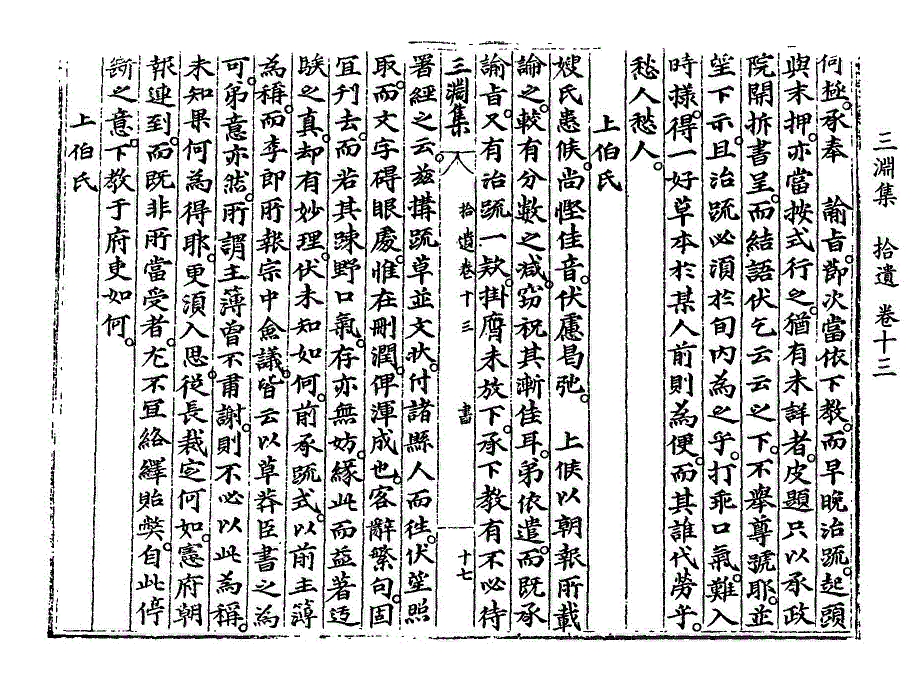 三淵集 拾遺 卷十三
伺極。承奉 諭旨。節次當依下教。而早晩治疏。起頭
與末押。亦當按式行之。猶有未詳者。皮題只以承政
院開拆書呈。而結語伏乞云云之下。不擧尊號耶。並
望下示。且治疏必須於旬內爲之乎。打乖口氣。難入
時樣。得一好草本於某人前則爲便。而其誰代勞乎。
愁人愁人。
上伯氏
嫂氏患候。尙慳佳音。伏慮曷弛。 上候以朝報所載
論之。較有分數之减。窃祝其漸佳耳。弟依遣。而旣承
諭旨。又有治疏一欵。掛膺未放下。承下教有不必待
三淵集 拾遺卷十三 書 十七
署經之云。玆搆疏草並文狀。付諸縣人而往。伏望照
取。而文字碍眼處。惟在刪潤。俾渾成也。客辭繁句。固
宜刊去。而若其踈野口氣。存亦無妨。緣此而益著迃
騃之眞。却有妙理。伏未知如何。前承疏式。以前主簿
爲稱。而李郞所報宗中僉議。皆云以草莽臣書之爲
可。弟意亦然。所謂主簿曾不肅謝。則不必以此爲稱。
未知果何爲得耶。更須入思。從長裁定何如。憲府朝
報連到。而旣非所當受者。尤不宜絡繹貽弊。自此停
斷之意。下教于府吏如何。
上伯氏